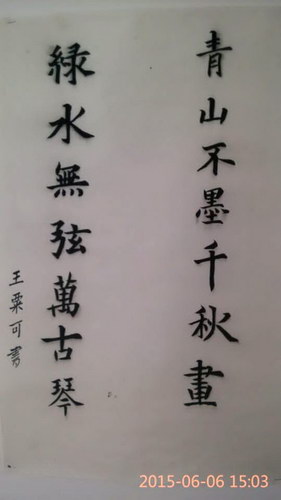 青山不墨千秋畫
綠水無弦萬古琴
王粟可書
2015-06-06 15:03